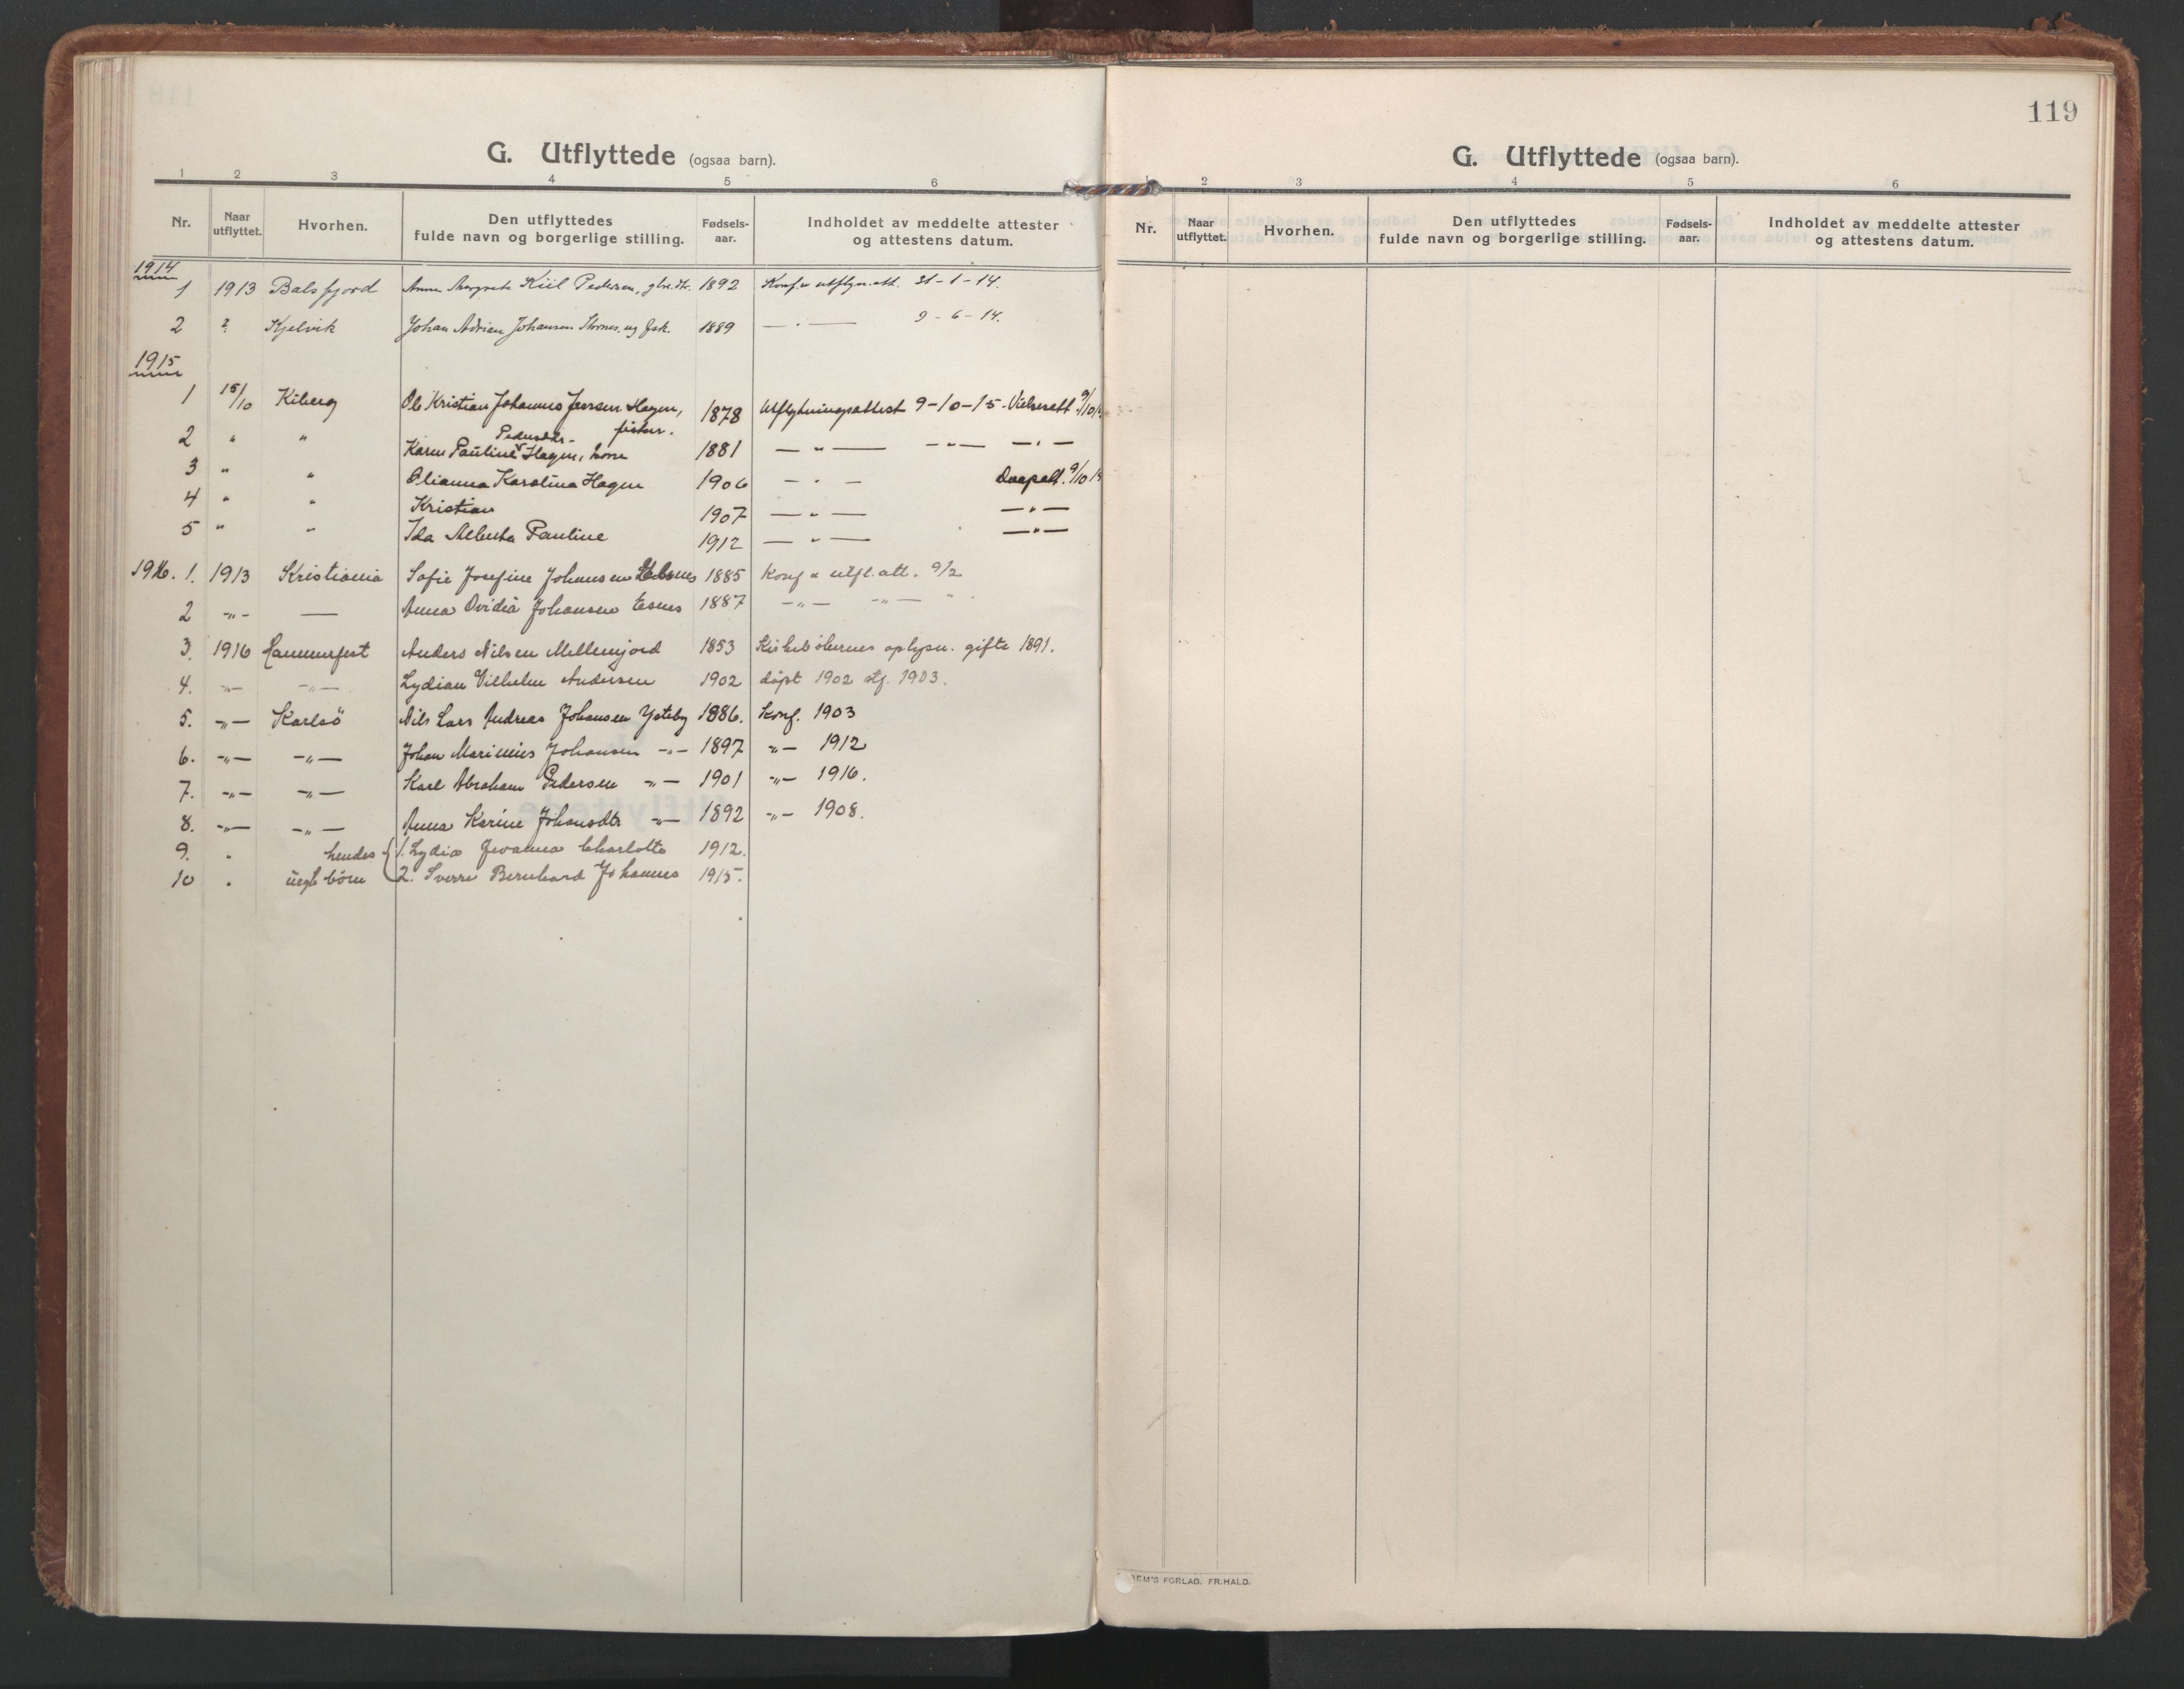 G. Utflyttede (ogsaa barn).
1 2 3 4 5 6
Nr. Naar utflyttet. Hvorhen. Den utflyttedes fulde navn og borgerlige stilling. Fødsels-aar. Indholdet av meddelte attester og attestens datum.
1914
1 1913 Balsfjord Anna Margrete Kiil Pedersen, 1892 Konf. & utflytn.att. 31-1-14.
2 ? Kjelvik Johan Adrian Johansen ug fsk. 1889 — " — 9-6-14.
1915
1 15/10 Kiberg Ole Kristian Johannes Jensen Hagen, fisker. 1878 Utflytningsattest 9-10-15. Vielsesatt. 9/10
Pedersdtr.
2 " " Karen Pauline Hagen, kone 1881 — " — — " — — " —
3 " " Olianna Karolina Hagen 1906 — " — Daapsatt. 9/10 15
4 " " Kristian 1907 — " — — " —
5 " " Ida Alberta Pauline 1912 — " — — " —
1916. 1. 1913 Kristiania Sofie Josefine Johansen 1885 Konf & utfl. att. 9/2
2 -"- — Anna Ovidia Johansen Esnes 1887 -"- -"- "
3. 1916 Hammerfest Anders Nilsen Mellemjord 1853 Kirkebökernes oplysn. gifte 1891.
4. -"- -"- Lydian Vilhelm Andersen 1902 döpt 1902 stf. 1903.
5. -"- Karlsö Nils Lars Andreas Johansen Ysteby 1886. Konf. 1903
6. -"- -"- Johan Marinius Johansen -"- 1897 -"- 1912
7. -"- -"- Karl Abraham Pedersen -"- 1901 -"- 1916.
8. -"- -"- Anna Karine Johansdtr -"- 1892 -"- 1908.
9. " hendes { 1. Lydia Jovanna Charlotte 1912.
10 " uegte börn { 2. Sverre Bernhard Johannes 1915.
119
G. Utflyttede (ogsaa barn).
1 2 3 4 5 6
Nr. Naar utflyttet. Hvorhen. Den utflyttedes fulde navn og borgerlige stilling. Fødsels-aar. Indholdet av meddelte attester og attestens datum.
FORLAG. FR.HALD.